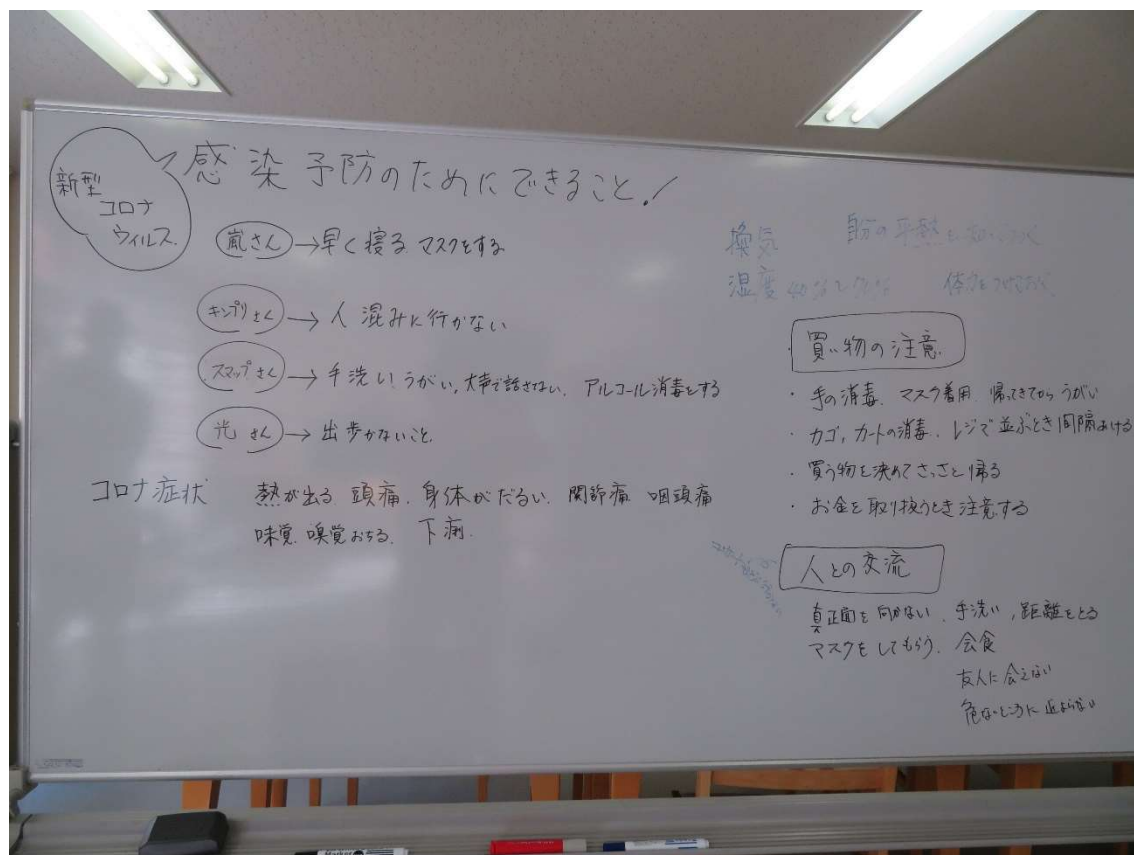 新型
コロナ
ウィルス
感染予防のためにできること!
嵐さん→早く寝る マスクをする
キンプリさん→人混みに行かない
スマップさん→手洗い うがい, 大声で話さない、アルコール消毒をする
光さん→出歩かないこと
コロナ症状 熱が出る 頭痛、身体がだるい 関節痛 咽頭痛
味覚、嗅覚おちる 下痢
換気 自分の平熱を知っておく
湿度 40%~70% 体力をつけておく
買い物の注意
・手の消毒、マスク着用 帰ってきてからうがい
・カゴ, カートの消毒、レジで並ぶとき間隔あける
・買う物を決めてさっさと帰る
・お金を取り扱うとき注意する
人との交流
真正面を向かない、手洗い, 距離をとる
マスクをしてもらう、会食
友人に会えない
危ないところに近よらない